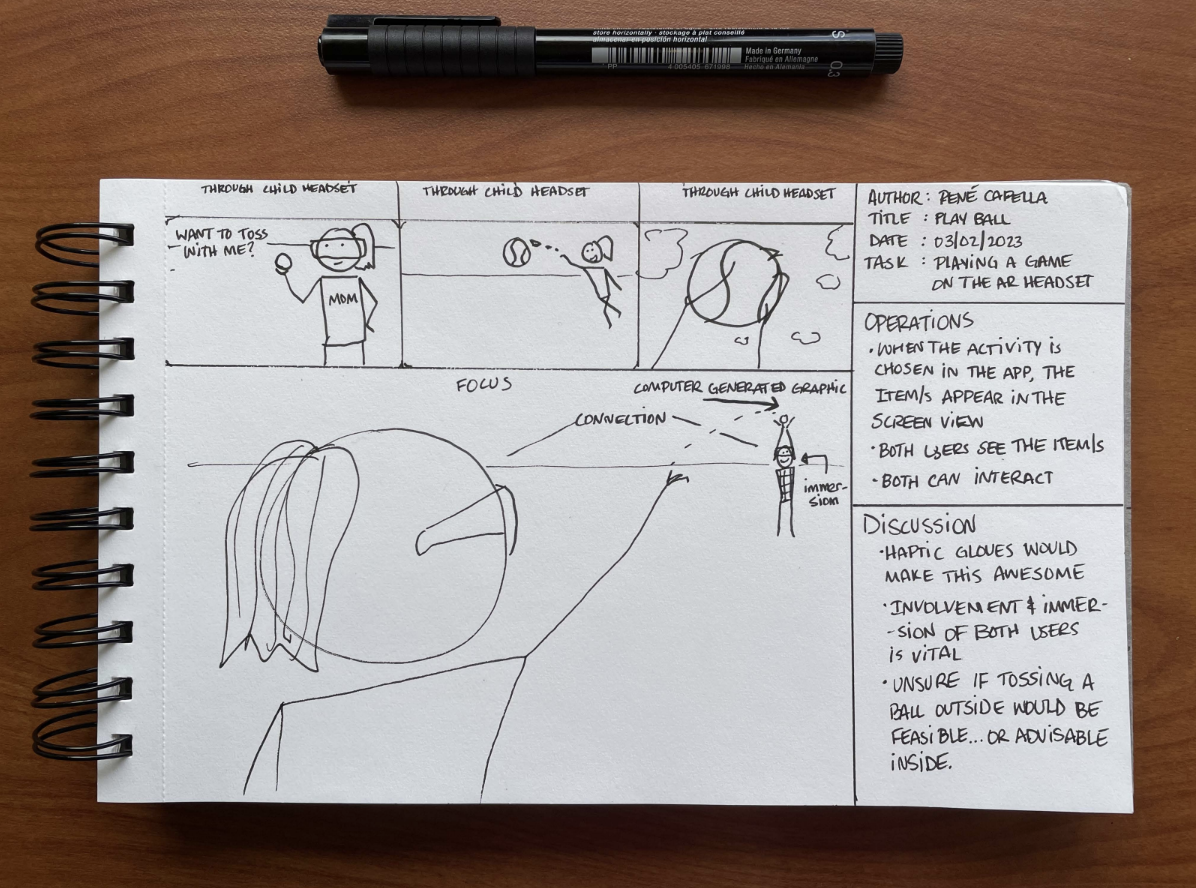 store horizontally · stockage à plat conseillé
almacenar en posición horizontal
Made in Germany
Fabriqué en Allemagne
Hecho en Alemania
PP
4 005405 671086
S
0.3
THROUGH CHILD HEADSET
THROUGH CHILD HEADSET
THROUGH CHILD HEADSET
WANT TO TOSS
WITH ME?
MOM
FOCUS
COMPUTER GENERATED GRAPHIC
CONNECTION
immer-
sion
AUTHOR : RENÉ CAPELLA
TITLE : PLAY BALL
DATE : 03/02/2023
TASK : PLAYING A GAME
ON THE AR HEADSET
OPERATIONS
· WHEN THE ACTIVITY is
CHOSEN IN THE APP, THE
ITEM/S APPEAR IN THE
SCREEN VIEW
· BOTH USERS SEE THE ITEM/S
· BOTH CAN INTERACT
DISCUSSION
· HAPTIC GLOVES WOULD
MAKE THIS AWESOME
· INVOLVEMENT & IMMER-
-SION OF BOTH USERS
IS VITAL
· UNSURE IF TOSSING A
BALL OUTSIDE WOULD BE
FEASIBLE... OR ADVISABLE
INSIDE.